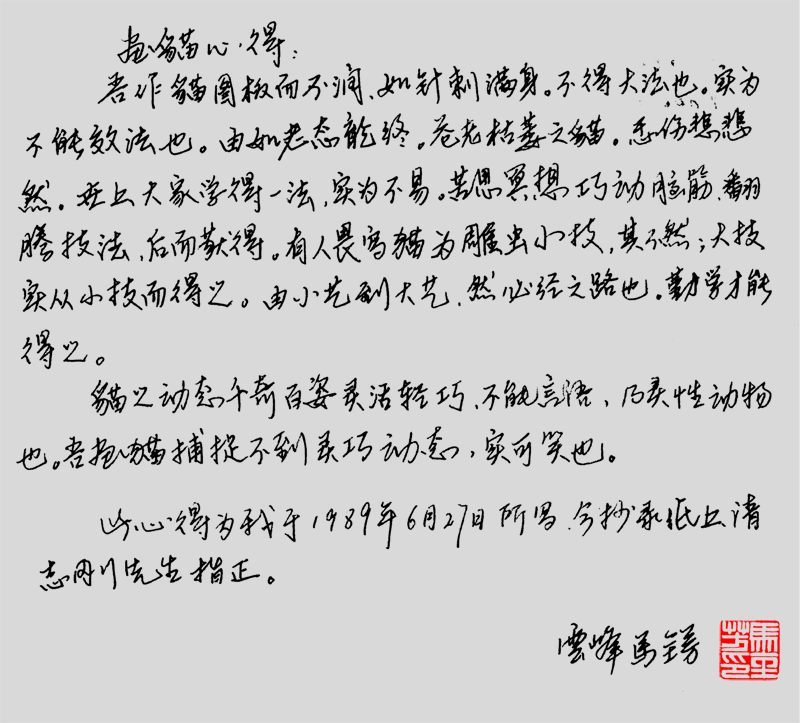 画貓心得：
吾作貓圖板而不润、如针刺满身。不得大法也。实为
不能效法也。由如老态龍终。苍老枯萎之貓。悲伤想悲
然。在上大家学得一法，实为不易。苦思冥想巧动脑筋、翻
腾技法，后而獻得。有人畏写貓为雕虫小技，其不然；大技
实从小技而得之。由小艺到大艺，然必经之路也。勤学才能
得之。
貓之动态千奇百姿灵活轻巧、不能言语、乃灵性动物
也。吾画貓捕捉不到灵巧动态，实可笑也。
此心得为我于1989年6月27日所写，今抄录纸上请
志刚先生指正。
雲峰馬